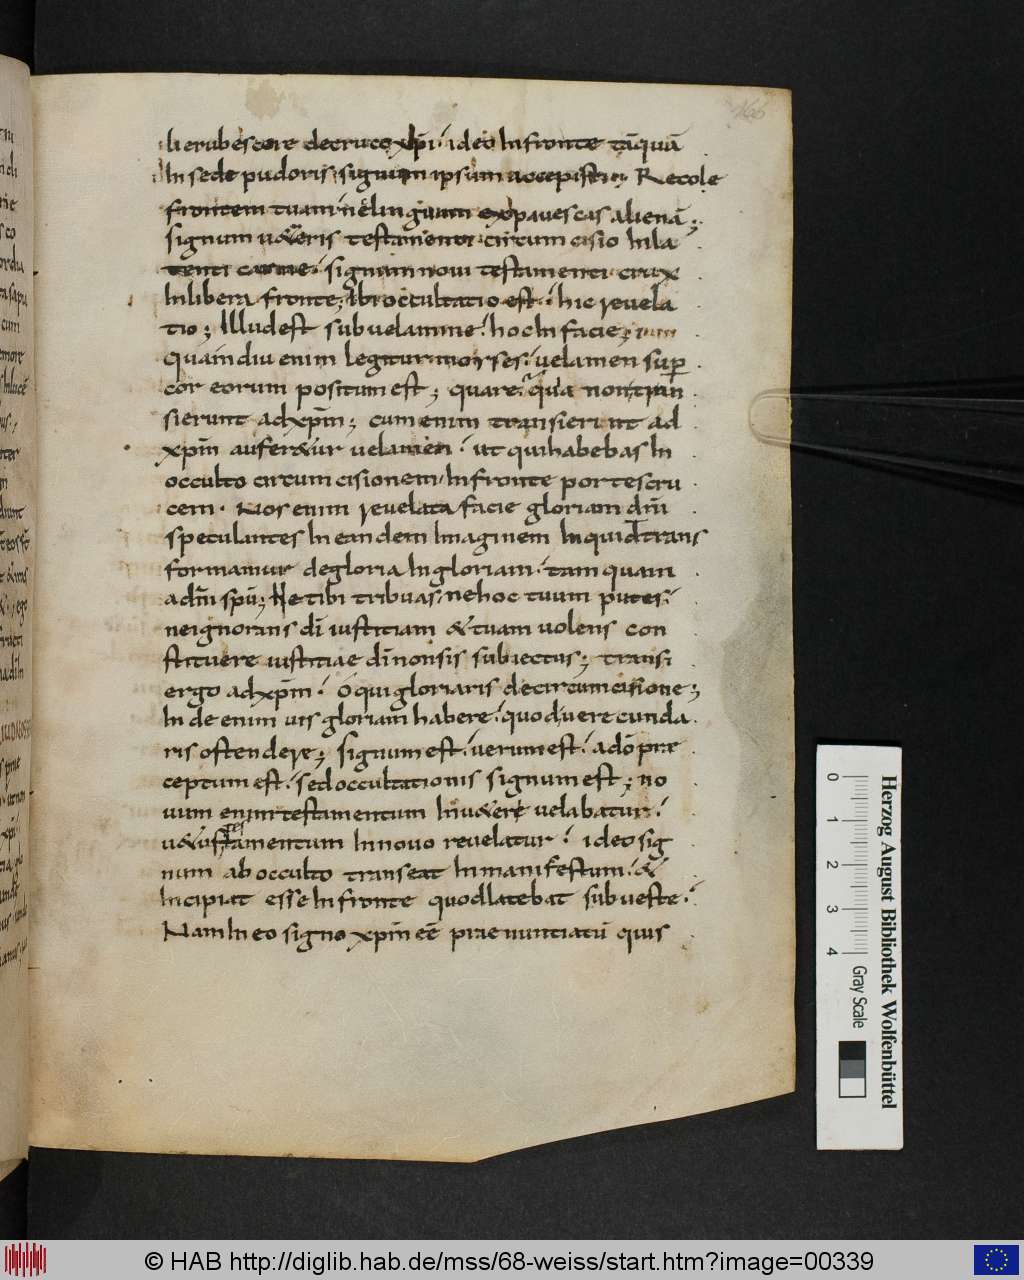 166
li erubescere decruce xp̄i · ideo Infronte tāquā
In sede pudoris signum ipsum accepisti; Recole
frontem tuam · nē linguam expavescas alienā;
signum veteris testamenti · circumcisio Inla
tenti carne · signum novi testamenti crux
Inlibera fronte; Ibi occultatio est · hic revela
tio; Illud est sub velamine · hoc In facie;
Quamdiu enim legitur moyses · velamen sup
cor eorum positum est; quare · quia non tran
sierunt ad xp̄m; cum enim transierint ad
xp̄m auferetur velamen · ut qui habebas In
occulto circumcisionem · Infronte portes cru
cem · Nos enim revelata facie gloriam dn̄i
speculantes In eandem Imaginem Inquid trans
formamur degloria In gloriam · tam quam
a dn̄i spū; Ne tibi tribuas · nehoc tuum putes ·
ne ignorans dī iustitiam & tuam volens con
stituere iustitiae dī non sis subiectus; transi
ergo ad xp̄m · O qui gloriaris de circumcisione;
In de enim vis gloriam habere · quod verecunda
ris ostendere; signum est · verum est · adō prae
ceptum est · sed occultationis signum est; no
vum enim testamentum In vetere velabatur ·
vetus testamentum In novo revelatur · ideo sig
num ab occulto transeat In manifestum · &
Incipiat esse Infronte quod latebat sub veste ·
Nam In eo signo xp̄m eē praenuntiatū quis
Herzog August Bibliothek Wolfenbüttel
0 1 2 3 4 Gray Scale
© HAB http://diglib.hab.de/mss/68-weiss/start.htm?image=00339